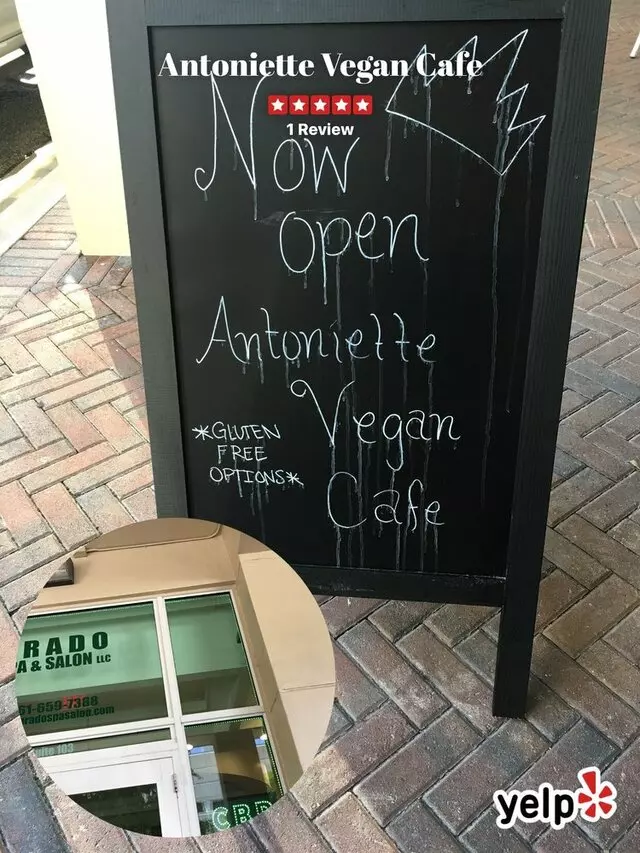 Antoniette Vegan Cafe
1 Review
Now
open
Antoniette
Vegan
*GLUTEN
FREE
OPTIONS*
Cafe
RADO
A & SALON LLC
61-659-7388
radospasalon.com
uite 103
CBD
yelp